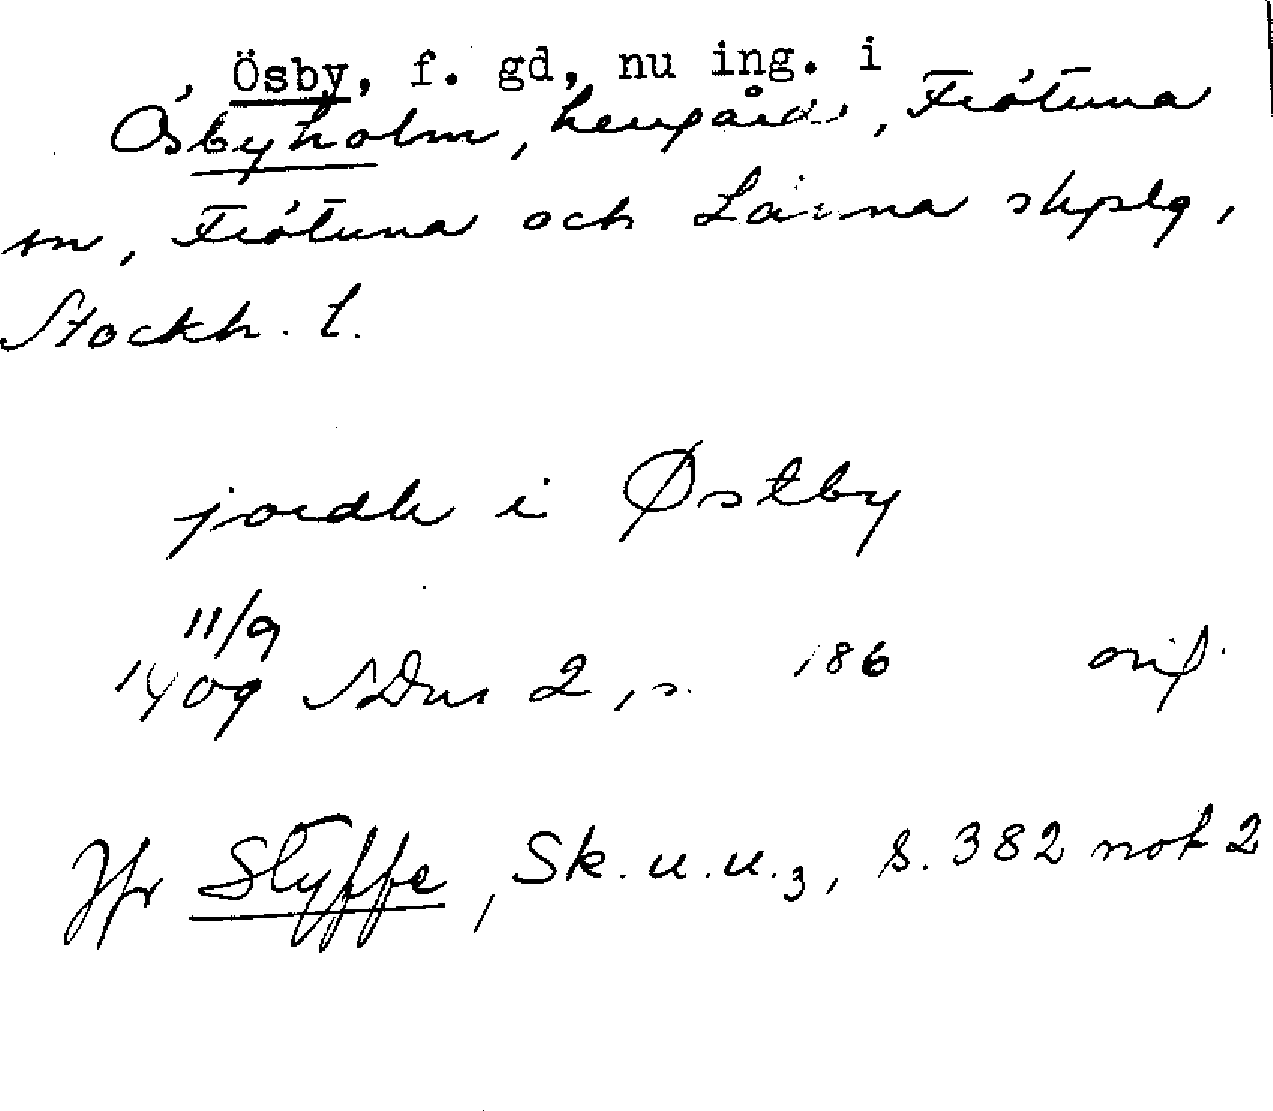 Ösby, f. gd, nu ing. i
Ösbyholm, herrgård, Frötuna
sn, Frötuna och Länna skplg,
Stockh. l.
jordh i Østby
11/9
1409 SDns 2, s. 186 orif.
Jfr Styffe, Sk. u. u. 3, s. 382 not 2